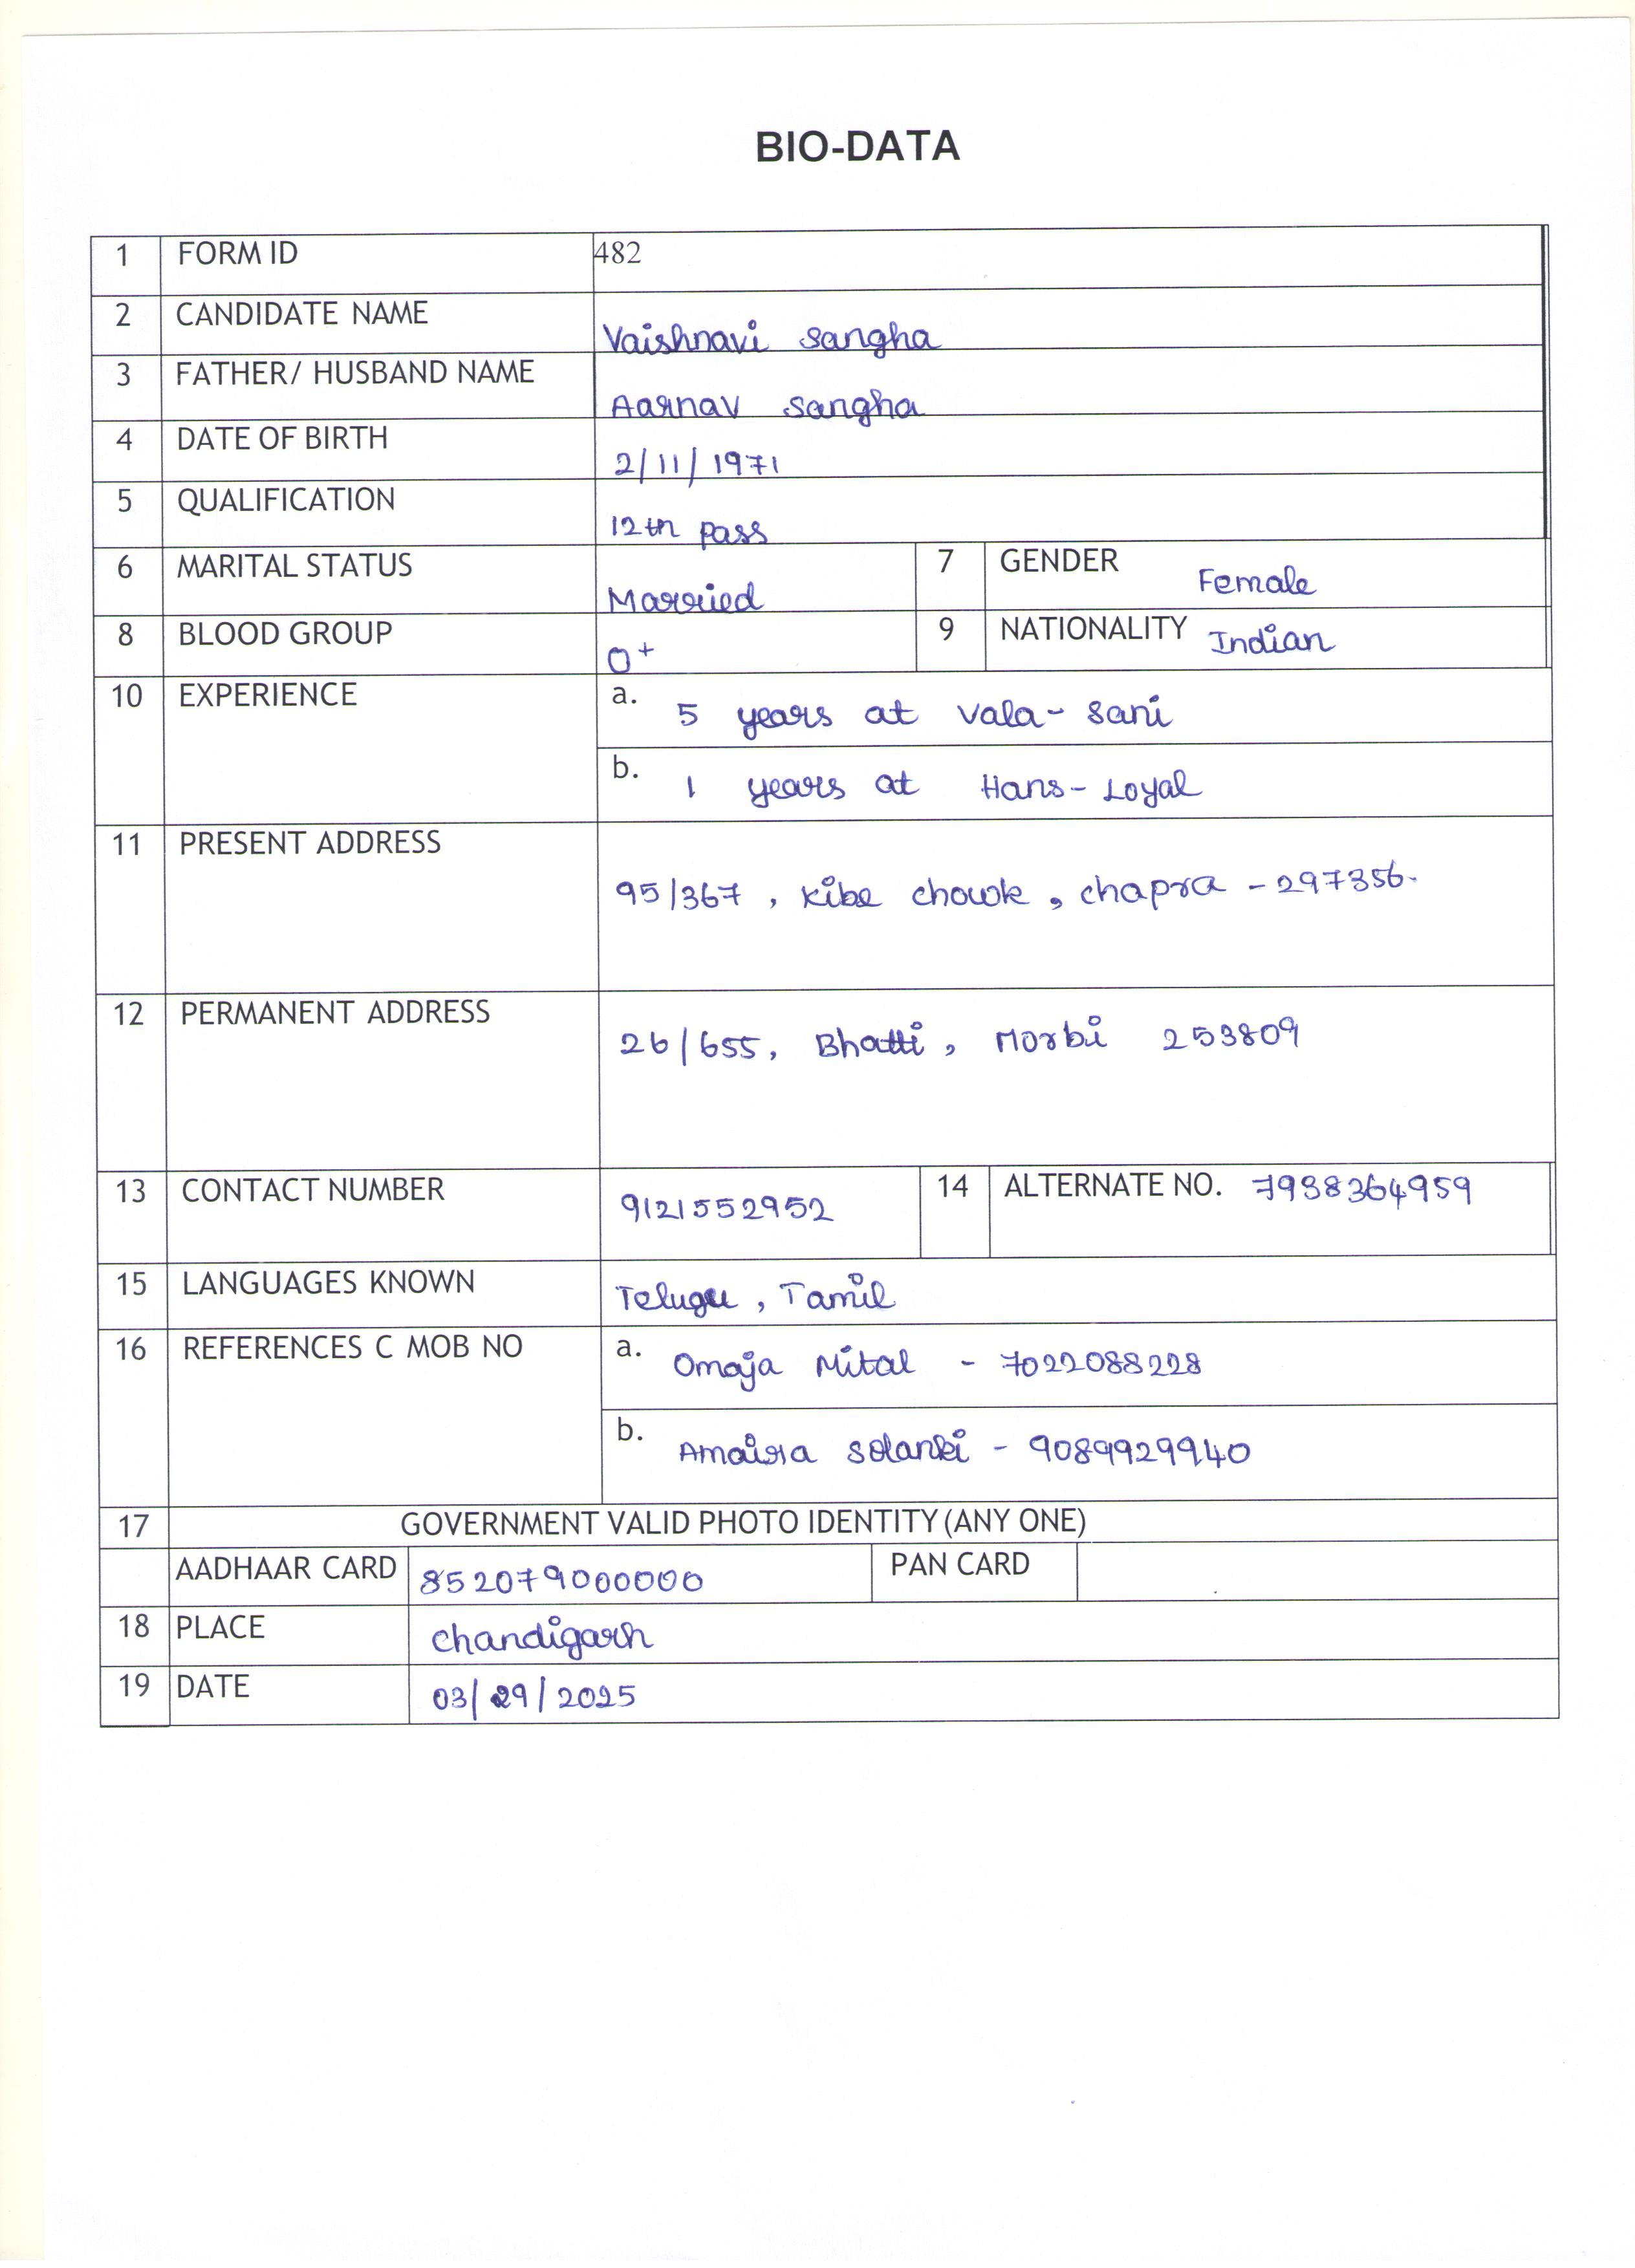 BIO-DATA
1 FORM ID 482
2 CANDIDATE NAME Vaishnavi Sangha
3 FATHER/ HUSBAND NAME Aarnav Sangha
4 DATE OF BIRTH 2/11/1971
5 QUALIFICATION 12th pass
6 MARITAL STATUS Married 7 GENDER Female
8 BLOOD GROUP O+ 9 NATIONALITY Indian
10 EXPERIENCE a. 5 years at Vala-Sani
b. 1 years at Hans-Loyal
11 PRESENT ADDRESS 95/367, Kibe chowk, chapra - 297356.
12 PERMANENT ADDRESS 26/655, Bhatti, Morbi 253809
13 CONTACT NUMBER 9121552952 14 ALTERNATE NO. 7938364959
15 LANGUAGES KNOWN Telugu, Tamil
16 REFERENCES C MOB NO a. Omaja Mital - 7022088228
b. Amaira Solanki - 9089929940
17 GOVERNMENT VALID PHOTO IDENTITY (ANY ONE)
AADHAAR CARD 852079000000 PAN CARD
18 PLACE chandigarh
19 DATE 03/29/2025